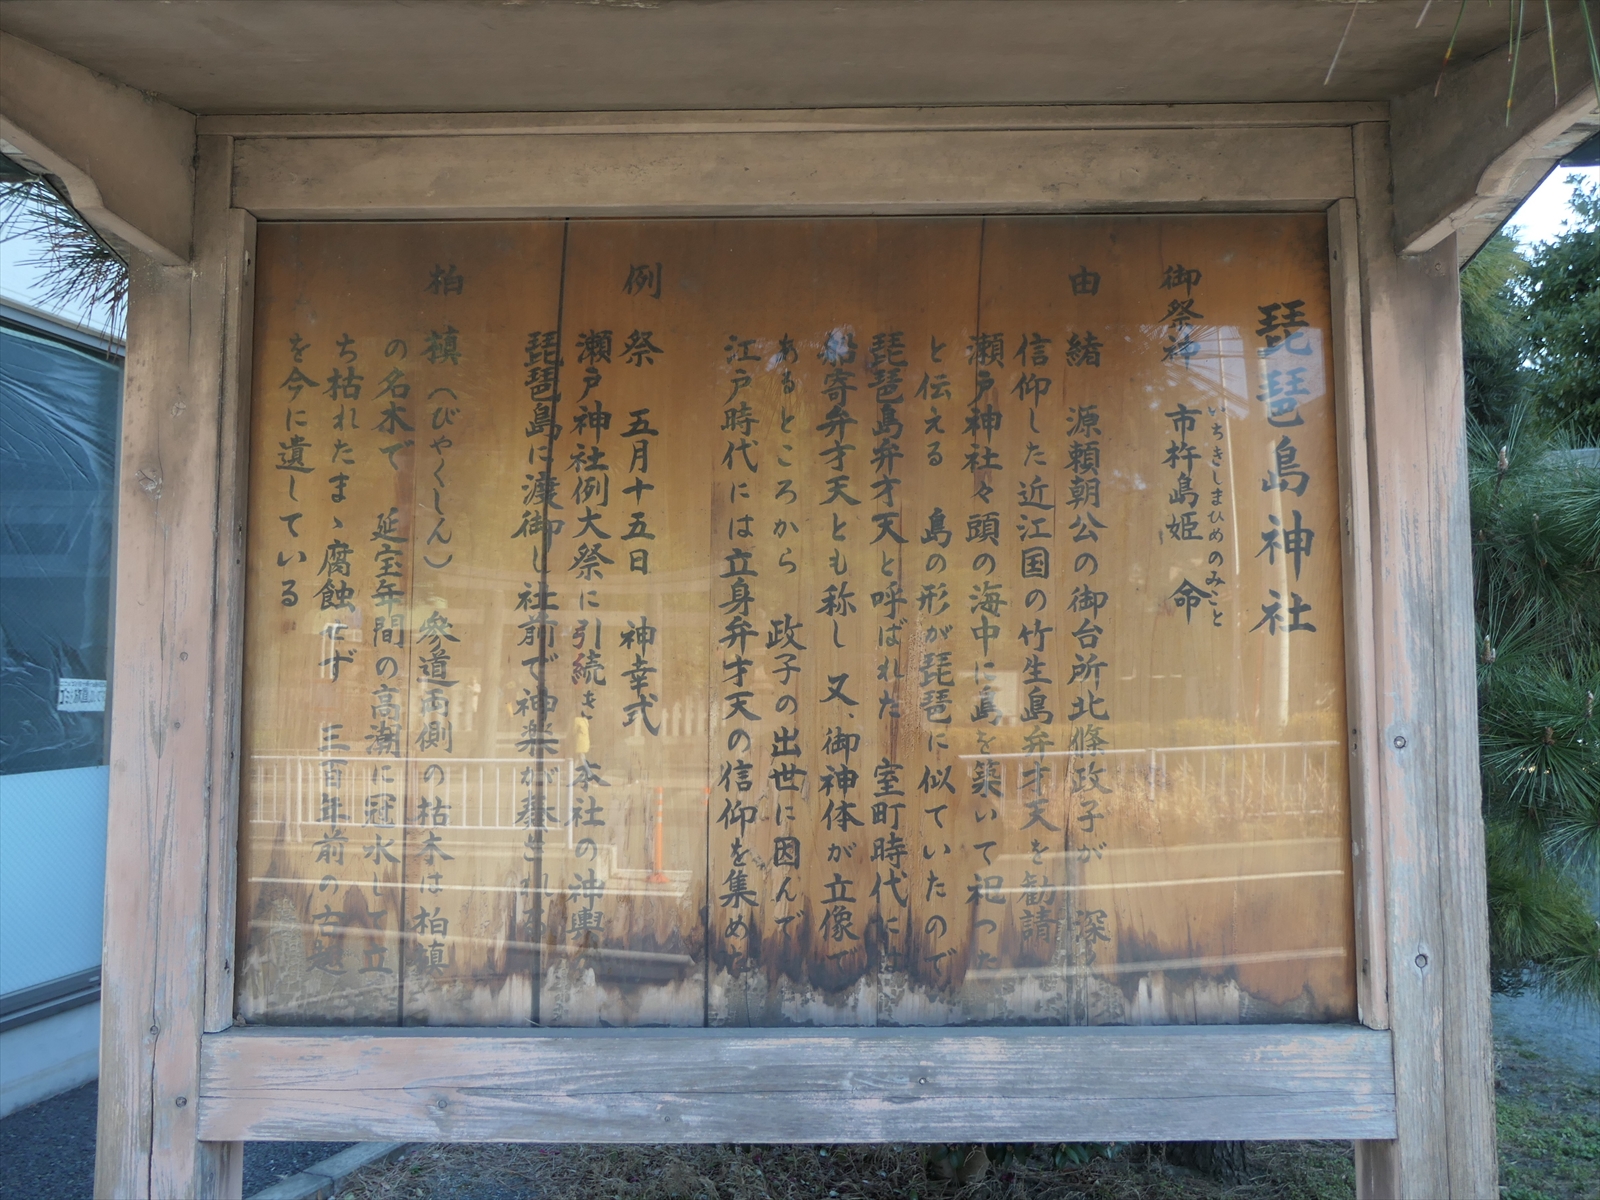 琵琶島神社
御祭神　市杵島姫　命
いちきしまひめのみこと
由　緒　源頼朝公の御台所北條政子が　深く
信仰した近江国の竹生島弁才天を勧請
瀬戸神社々頭の海中に島を築いて祀った
と伝える　島の形が琵琶に似ていたので
琵琶島弁才天と呼ばれた　室町時代には
船寄弁才天とも称し又、御神体が立像で
あるところから　政子の出世に因んで
江戸時代には立身弁才天の信仰を集めた
例　祭　五月十五日　神幸式
瀬戸神社例大祭に引続き　本社の神輿が
琵琶島に渡御し社前で神楽が奏される
柏　槙（びやくしん）　参道両側の枯木は柏槙
の名木で　延宝年間の高潮に冠水して立
ち枯れたまゝ腐蝕せず　三百年前の古趣
を今に遺している